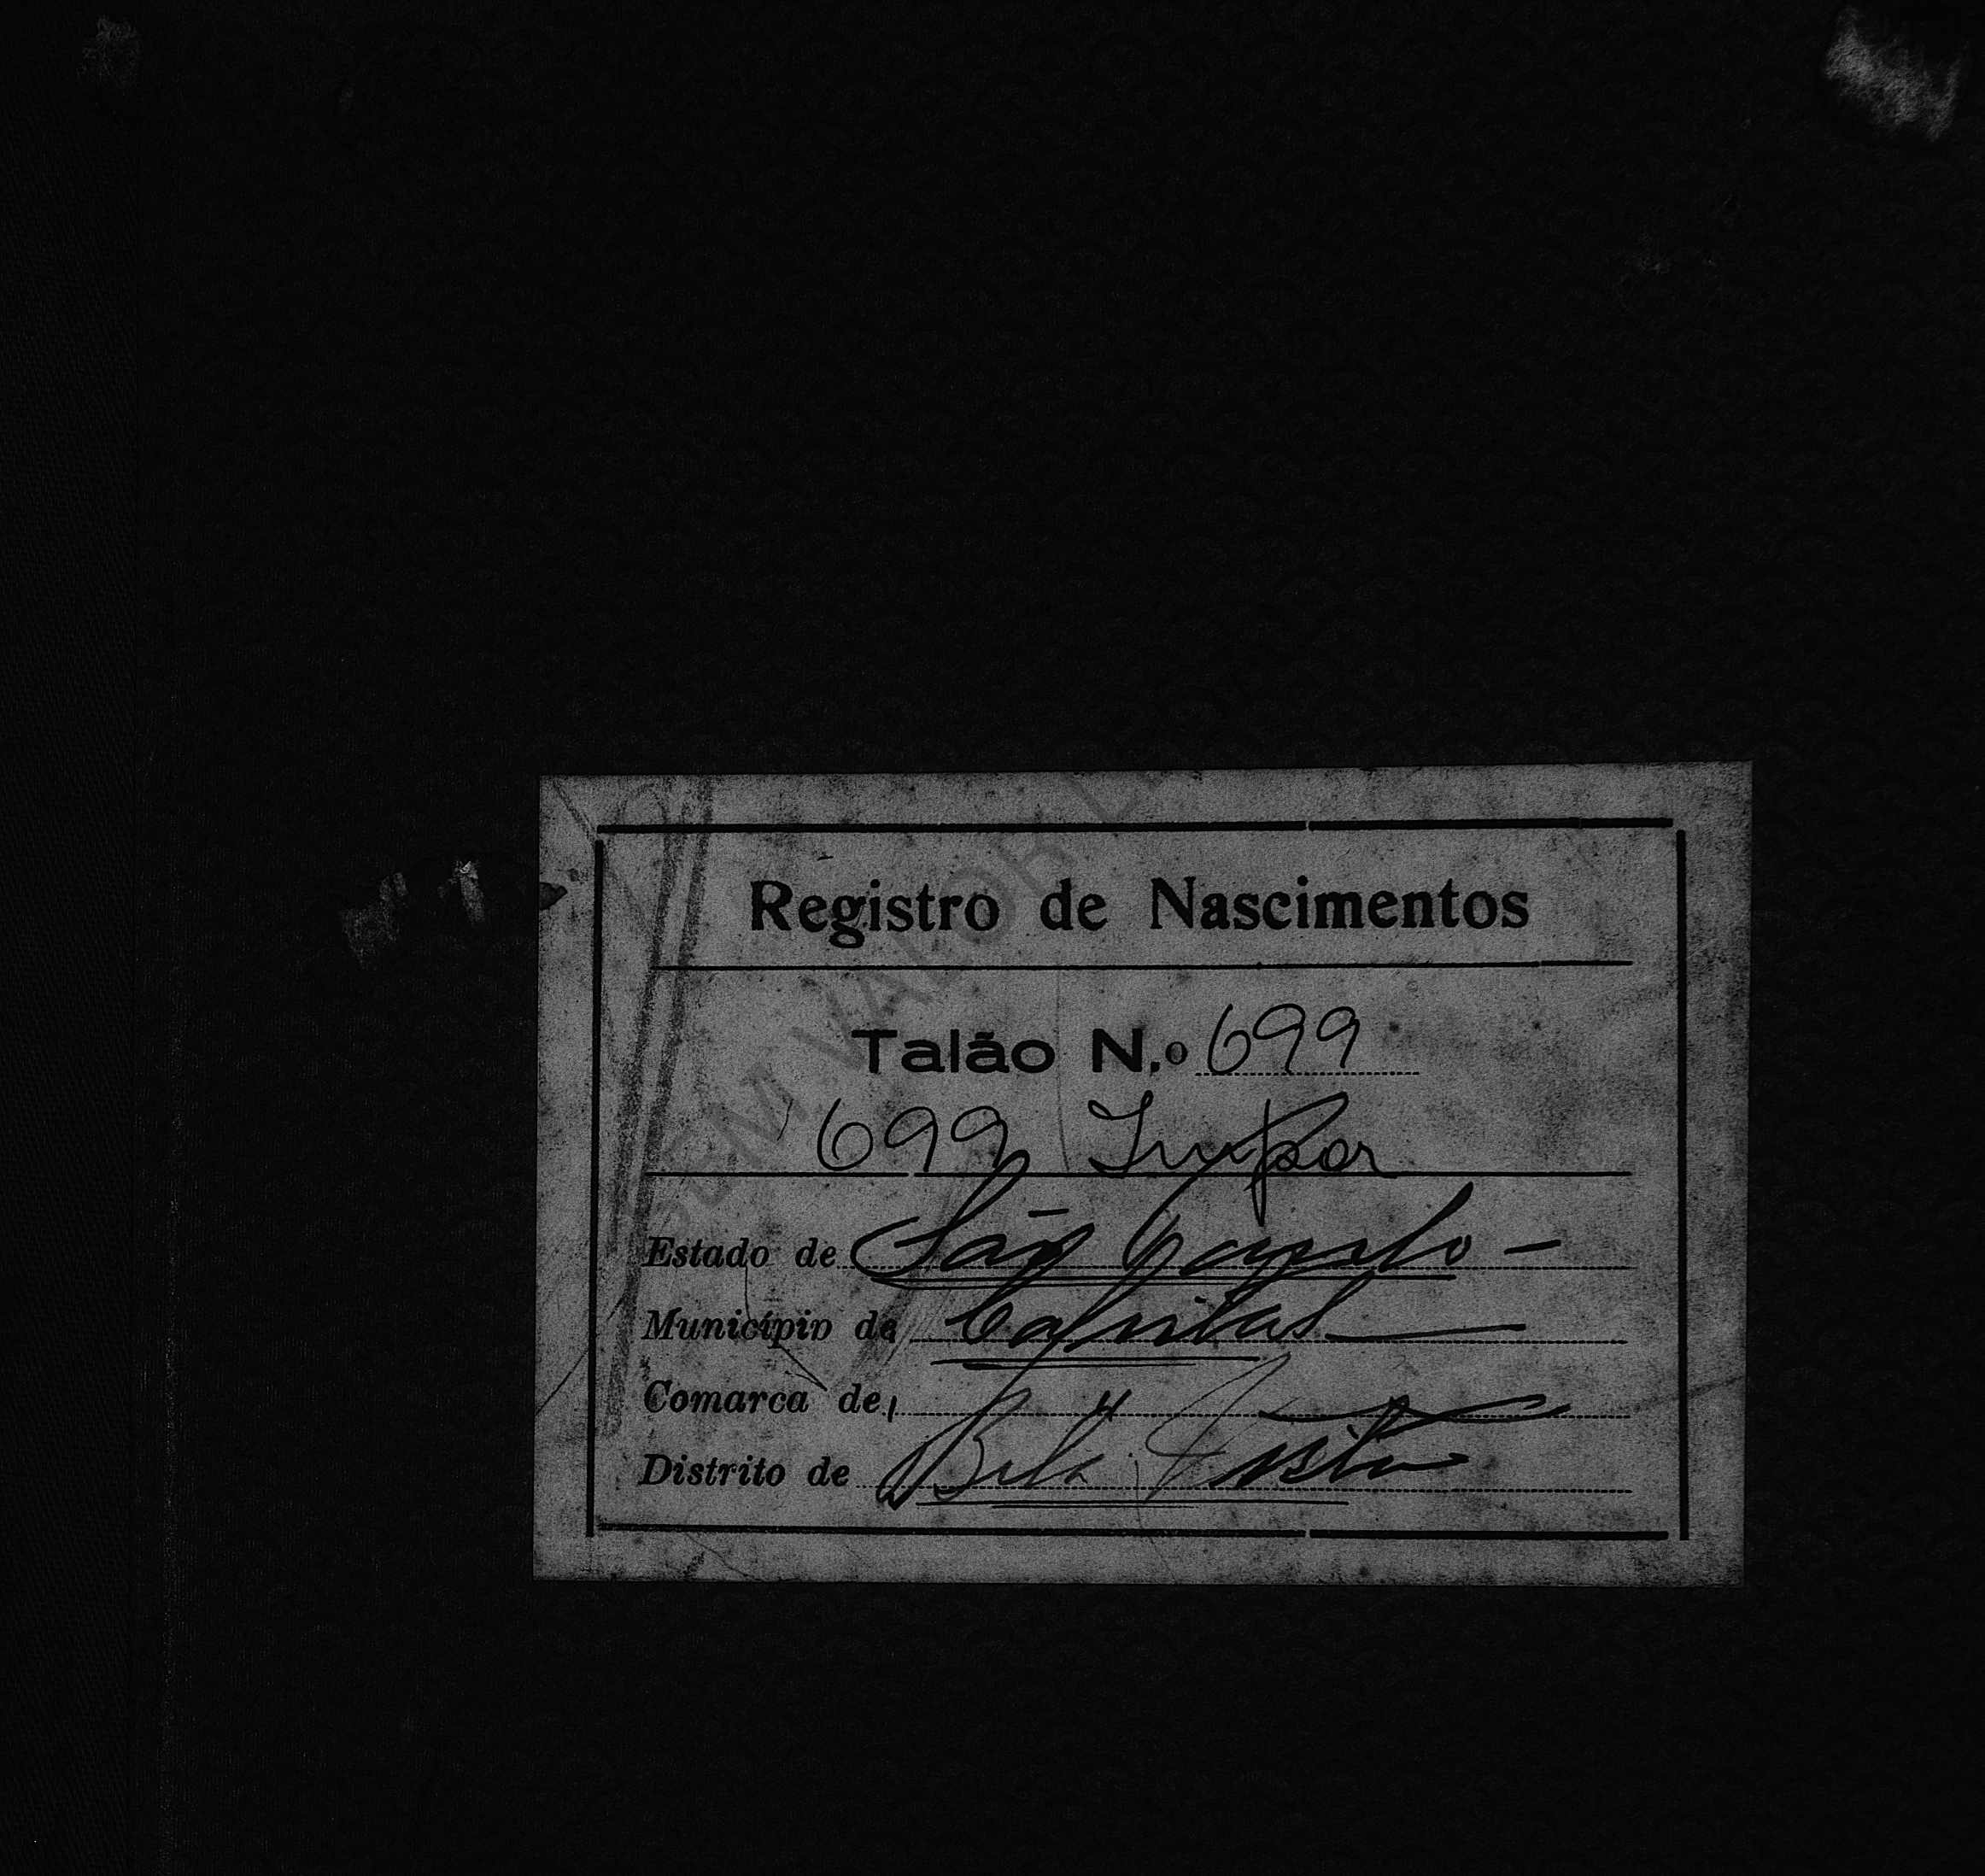 Registro de Nascimentos
Talão N.º 699
699 Impar
Estado de São Paulo -
Município da Capital
Comarca de, "
Distrito de Bela Vista
SEM VALOR L